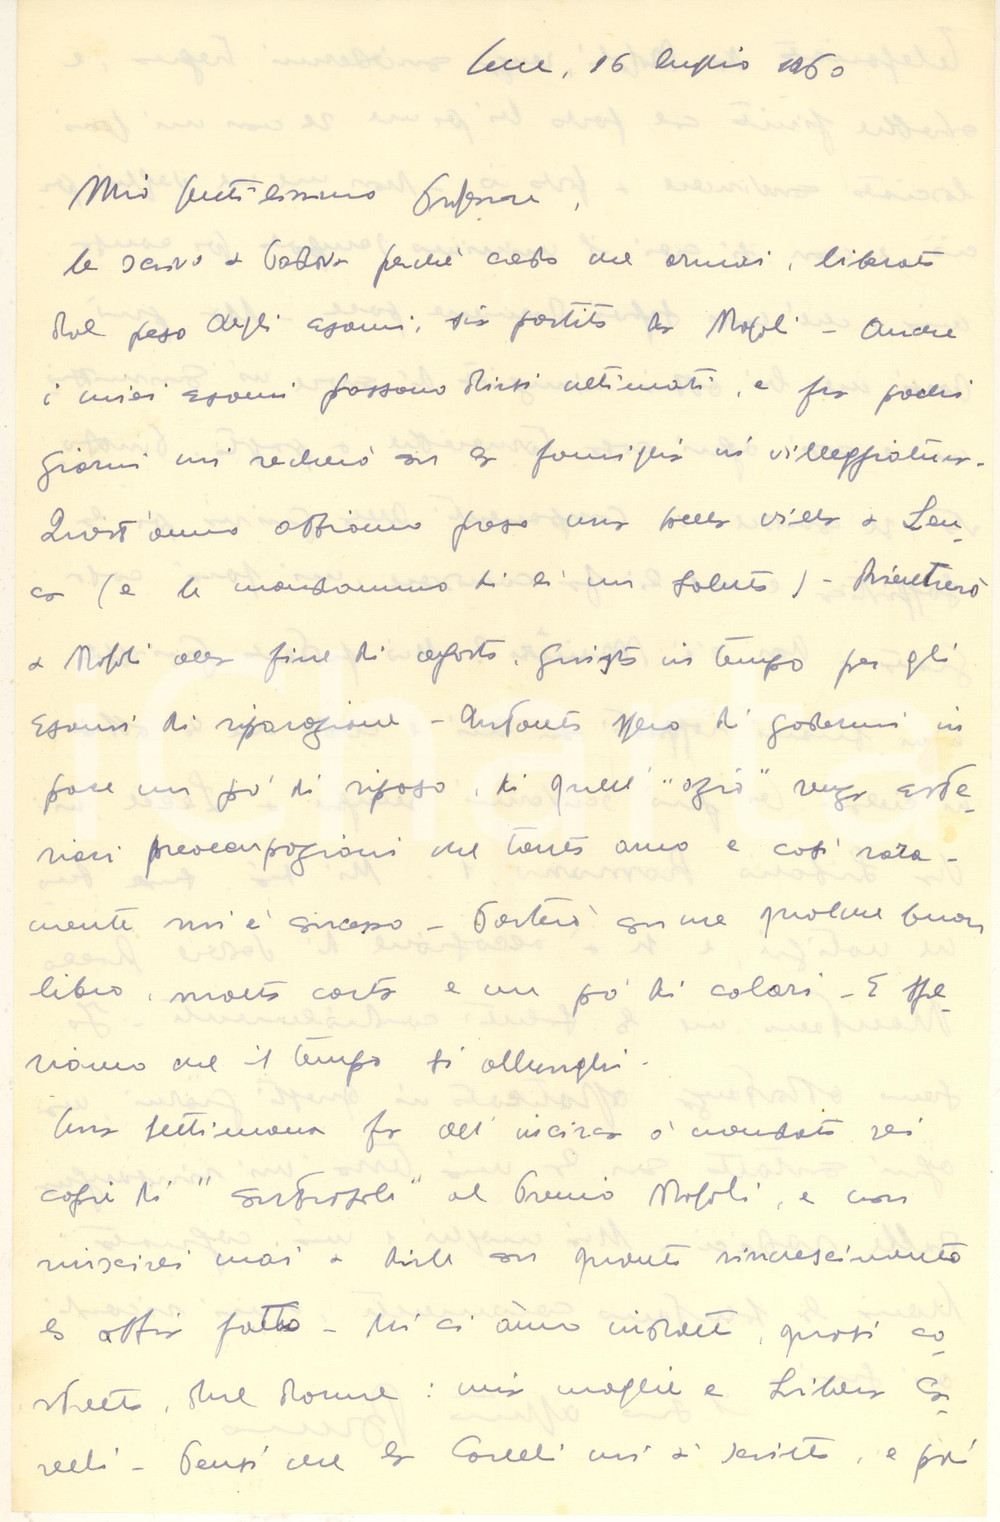 Lecce, 16 luglio 1960
Mio gentilissimo Professore,
le scrivo a Padova perchè credo che ormai, liberato
dal peso degli esami, sia partito da Napoli - Anche
i miei esami possono dirsi ultimati, e fra pochi
giorni mi recherò con la famiglia in villeggiatura.
Quest'anno abbiamo preso una bella villa a Leu-
ca (e le manderemo di lì un saluto) - Rientrerò
a Napoli alla fine di agosto, giusto in tempo per gli
esami di riparazione - Intanto spero di godermi in
pace un pò di riposo, di quell'"ozio" senza este-
riori preoccupazioni che tanto amo e così rara-
mente mi è concesso - Porterò con me qualche buon
libro, molta carta e un pò di colori - E spe-
riamo che il tempo si allunghi -
Una settimana fa all'incirca ò mandato sei
copie di " " al Premio Napoli, e non
riuscirei mai a dirle con quanto rincrescimento
lo abbia fatto - Mi ci ànno indotto, quasi co-
stretto, due donne : mia moglie e Libera Ca-
relli - Pensi che la Carelli mi à scritto, e poi